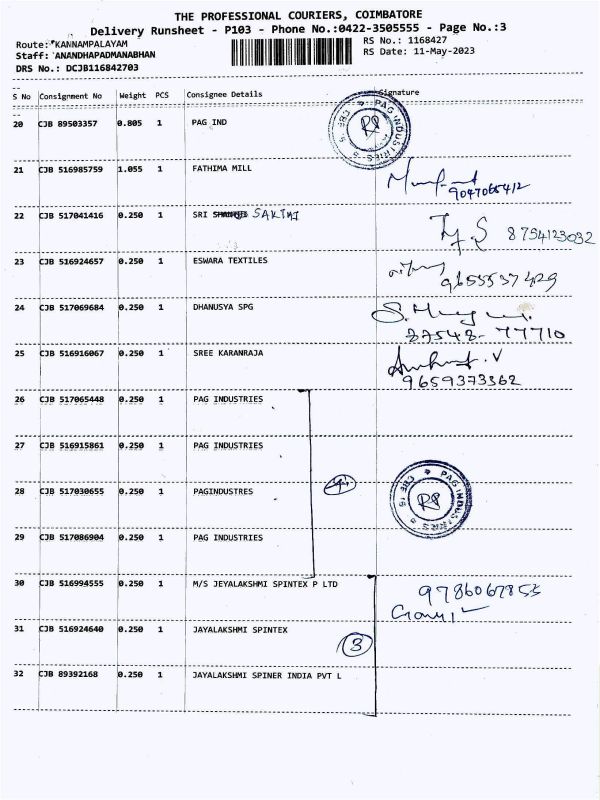 THE PROFESSIONAL COURIERS, COIMBATORE
Delivery Runsheet - P103 - Phone No.:0422-3505555 - Page No.:3
Route: KANNAMPALAYAM
RS No.: 1168427
Staff: ANANDHAPADMANABHAN
RS Date: 11-May-2023
DRS No.: DCJB116842703
S No Consignment No Weight PCS Consignee Details Signature
20 CJB 89503357 0.805 1 PAG IND
PAG INDUSTRIES CBE
21 CJB 516985759 1.055 1 FATHIMA MILL
9047065412
22 CJB 517041416 0.250 1 SRI SAKTHI
8754123032
23 CJB 516924657 0.250 1 ESWARA TEXTILES
9655537429
24 CJB 517069684 0.250 1 DHANUSYA SPG
87548-77710
25 CJB 516916067 0.250 1 SREE KARANRAJA
9659373362
26 CJB 517065448 0.250 1 PAG INDUSTRIES
27 CJB 516915861 0.250 1 PAG INDUSTRIES
28 CJB 517030655 0.250 1 PAGINDUSTRES
4
PAG INDUSTRIES CBE
29 CJB 517086904 0.250 1 PAG INDUSTRIES
30 CJB 516994555 0.250 1 M/S JEYALAKSHMI SPINTEX P LTD
9786067855
31 CJB 516924640 0.250 1 JAYALAKSHMI SPINTEX
3
32 CJB 89392168 0.250 1 JAYALAKSHMI SPINER INDIA PVT L